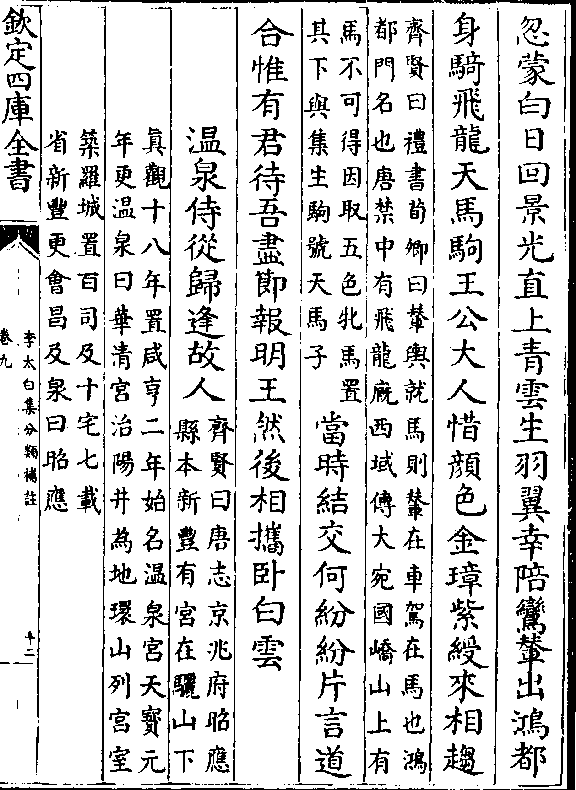 忽蒙白日回景光直上青雲生羽翼幸陪鸞輦出鴻都
身騎飛龍天馬駒王公大人惜顔色金璋紫綬來相趨
齊賢曰禮書荀卿曰輦輿就馬則輦在車駕在馬也鴻
都門名也唐禁中有飛龍廐西域傳大宛國嶠山上有
馬不可得因取五色牝馬置
其下與集生駒號天馬子
當時結交何紛紛片言道
合惟有君待吾盡節報明王然後相攜卧白雲
温泉侍從歸逢故人
齊賢曰唐志京兆府昭應
縣本新豐有宮在驪山下
貞觀十八年置咸亨二年始名温泉宮天寶元
年更温泉曰華清宮治陽井為地環山列宮室
築羅城置百司及十宅七載
省新豐更會昌及泉曰昭應
欽定四庫全書
李太白集分類補註
卷九
十二